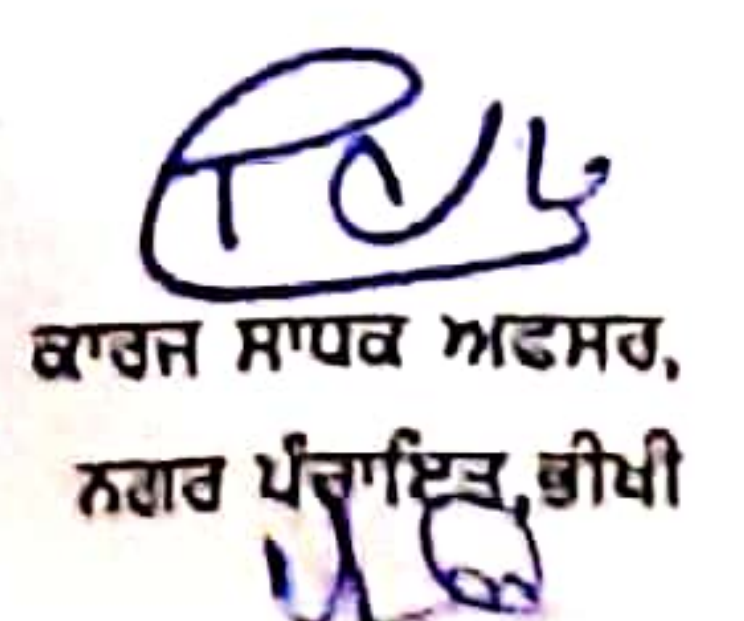 ਕਾਰਜ ਸਾਧਕ ਅਫਸਰ,
ਨਗਰ ਪੰਚਾਇਤ, ਭੀਖੀ